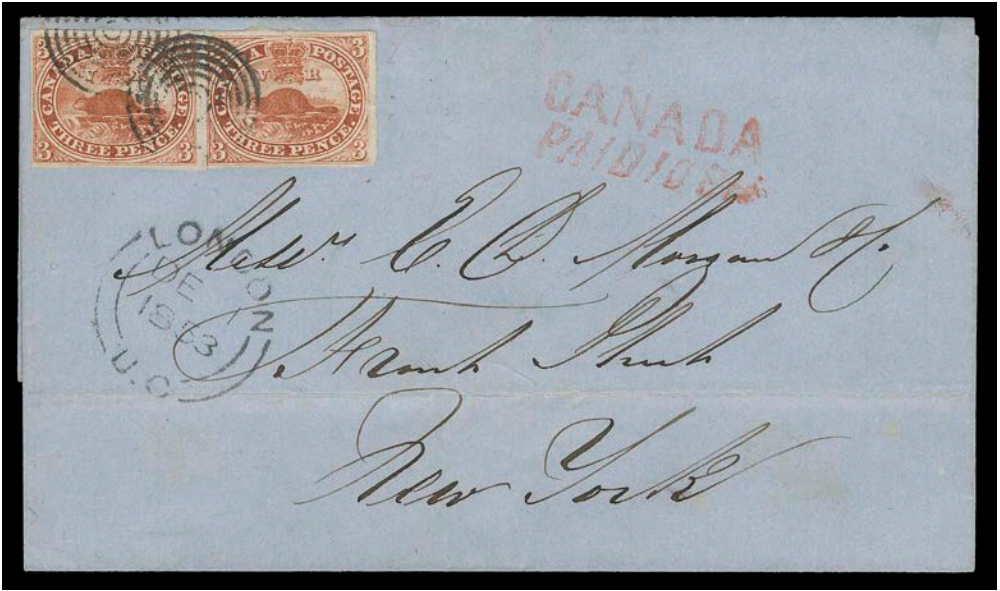 3 CANADA POSTAGE. 3
V R
3 THREE PENCE. 3
3 CANADA POSTAGE. 3
V R
3 THREE PENCE. 3
CANADA
PAID 10
LONDON
DE 1
1853
U.C
Messrs. E. D. Morgan & Co.
Front
New York